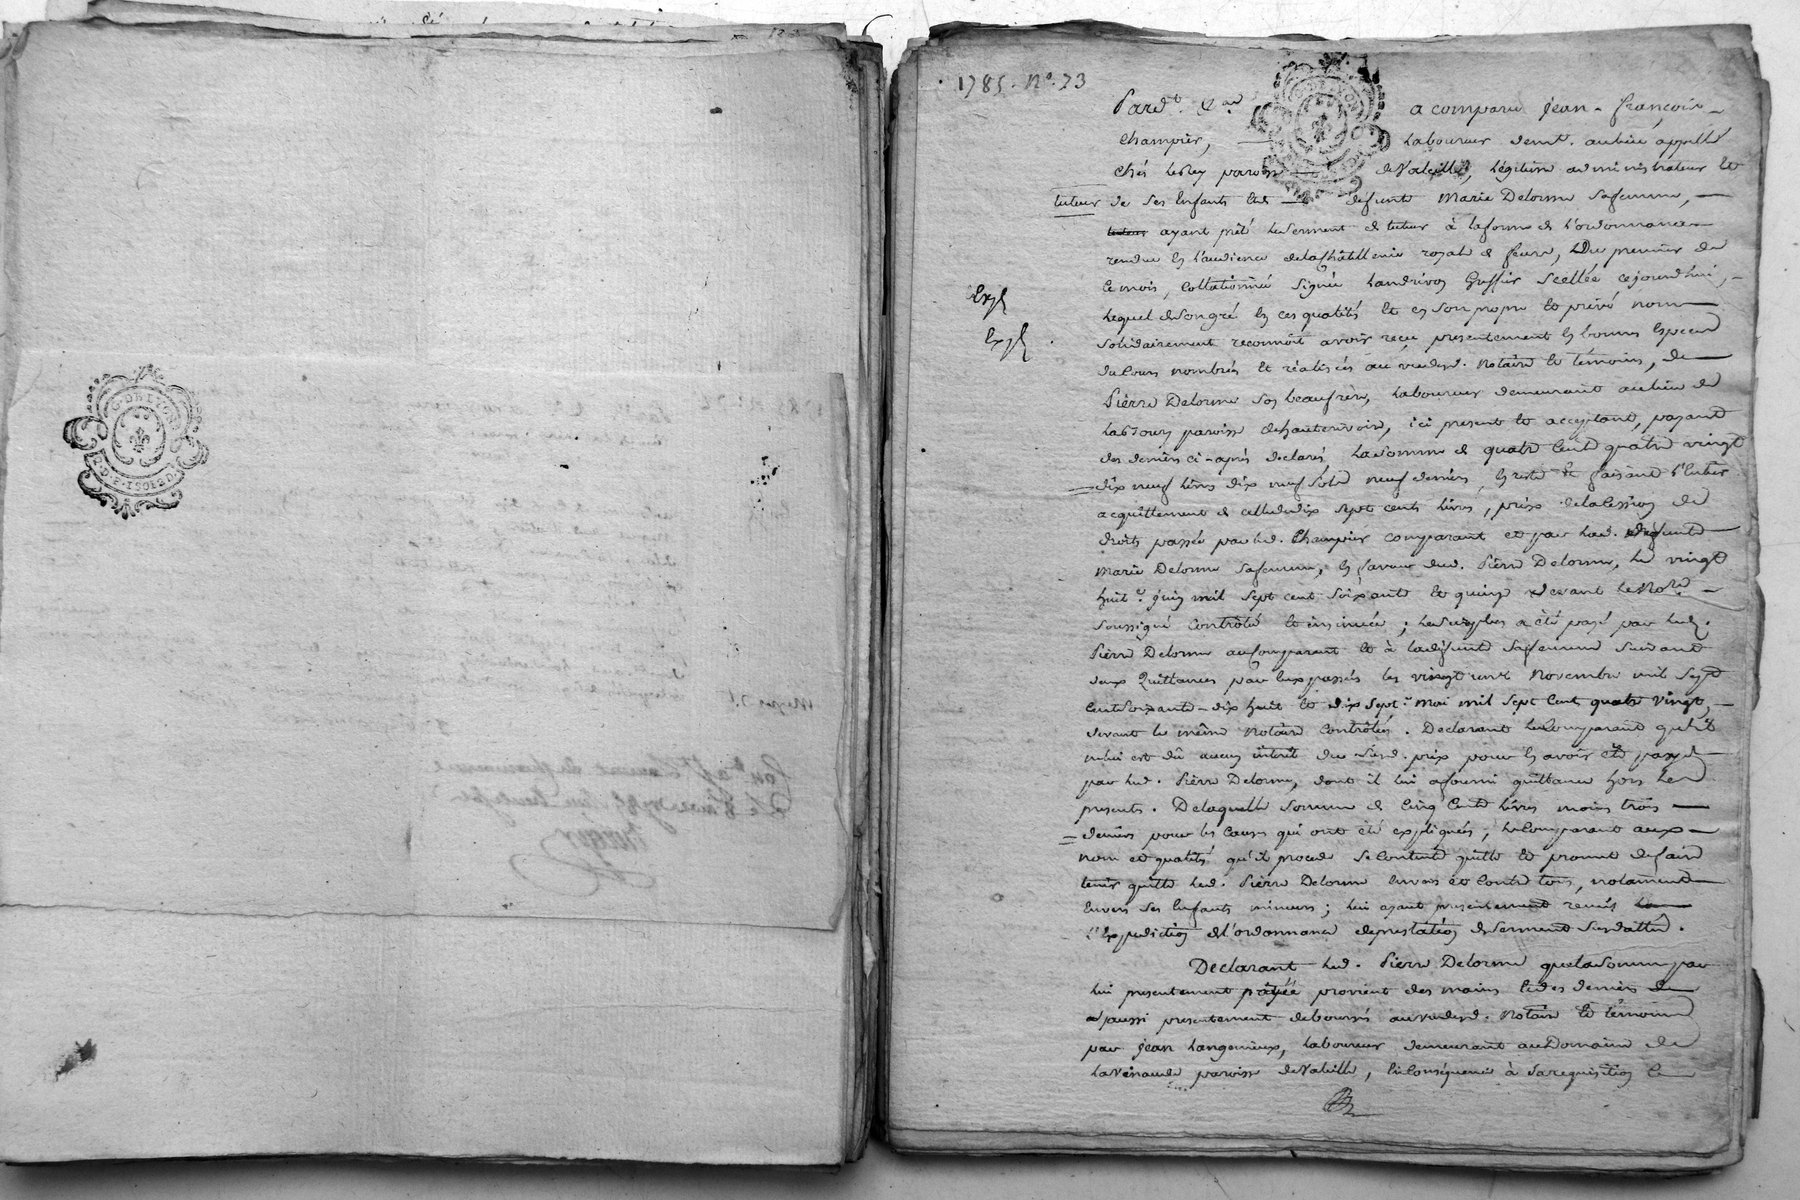 G. DE LYON
2.D.F. 1SOL 2D.
1785. N.° 73
Pard.t &.a a comparu Jean-françois
Champier, Laboureur dem.t. au lieu appellé
Chés paroisse de Valeille, légitime administrateur et
tuteur de ses Enfants et de defunte Marie Delorme sa femme,
ayant prêté le serment de tuteur à la forme de l'ordonnance
rendue en l'audience de la Châtellenie royale de feurs, du premier de
ce mois, Collationnée Signée Landrivon Greffier Scellée cejourd'hui,
Exp.
Exp.
Lequel de son gré en ces qualités et en son propre et privé nom
solidairement reconnoit avoir reçu presentement en bonnes Especes
de Cours nombrées et réalisées au vu dud. Notaire et témoins, de
Pierre Delorme son beaufrère, Laboureur demeurant au lieu de
paroisse de hauterivoire, ici present et acceptant, payant
des deniers ci-après declarés la somme de quatre Cent quatre vingt
dix neuf livres dix neuf sols neuf deniers, En reste et faisant l'Entier
acquittement de celle de dix sept cents livres, prix de la Cession de
droits passée par led. Champier comparant et par lad. defunte
Marie Delorme sa femme, en faveur dud. Pierre Delorme, le vingt
huit.e juin mil sept cent soixante et quinze devant le No.re
soussigné Contrôlée et insinuée ; le surplus a été payé par led.
Pierre Delorme au Comparant et à lad. defunte sa femme suivant
deux Quittances par Eux passées les vingt un.e Novembre mil Sept
Cent soixante-dix huit et dix sept.e mai mil sept Cent quatre vingt,
devant le même Notaire Contrôlées. Declarant le Comparant qu'il
ne lui est dû aucun intérêt du susd. prix pour les avoir été payés
par led. Pierre Delorme, dont il lui a fourni quittance hors les
presentes. De laquelle somme de Cinq Cents livres moins trois
deniers pour les Causes qui ont été expliquées, le Comparant aux
nom et qualités qu'il procede se Contente quitte et promet de faire
tenir quitte led. Pierre Delorme Envers et Contre tous, notamment
Envers ses Enfants mineurs ; lui ayant presentement remis
l'Expedition de l'ordonnance de prestation de serment susdattée.
Declarant led. Pierre Delorme que la somme par
lui presentement payée provient des mains et des deniers
aussi presentement deboursés au vu dud. Notaire et témoins
par Jean Langenieux, Laboureur demeurant au Domaine de
paroisse de Valeille, En Conséquence à sa requisition le